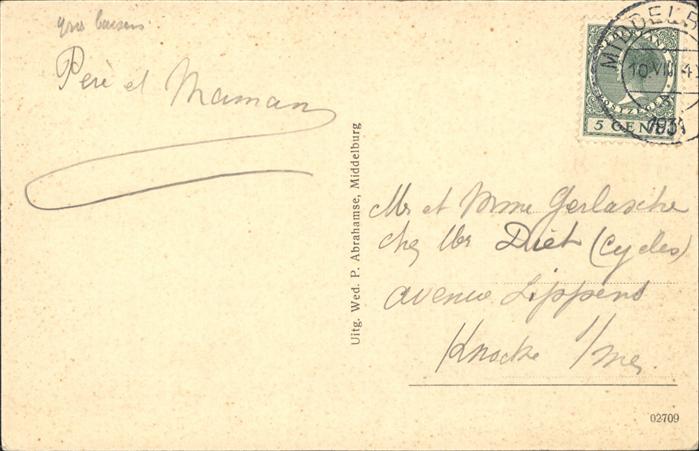 gros baisers
Père et Maman
Uitg. Wed. P. Abrahamse, Middelburg
MIDDELB
10.VIII 4
1931
5 CENT
Mr et Mme Gerlache
chez Mr Diet (Cycles)
avenue Lippens
Knocke s/mer
02709